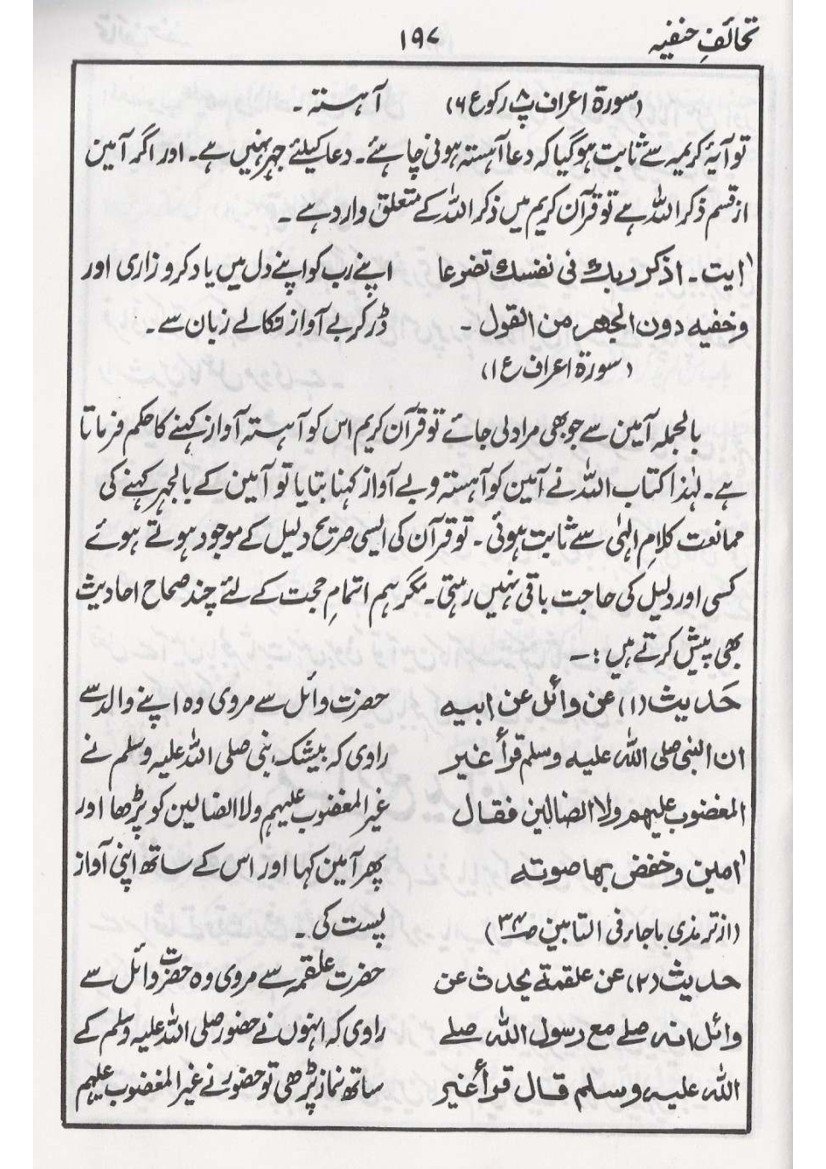 تحائفِ حنفیہ
۱۹۷
(سورۃ اعراف پ۸ رکوع ۶) آہستہ۔
تو آیۂ کریمہ سے ثابت ہوگیا کہ دعا آہستہ ہونی چاہئے۔ دعا کیلئے جہر نہیں ہے۔ اور اگر آمین
از قسم ذکر اللہ ہے تو قرآن کریم میں ذکر اللہ کے متعلق وارد ہے۔
اٰیت۔ اذکر ربک فی نفسک تضرعا اپنے رب کو اپنے دل میں یاد کرو زاری اور
وخفیہ دون الجھر من القول۔ ڈر کر بے آواز نکالے زبان سے۔
(سورۃ اعراف ع۱)
بالجملہ آمین سے جو بھی مراد لی جائے تو قرآن کریم اس کو آہستہ آواز کہنے کا حکم فرماتا
ہے۔ لہٰذا کتاب اللہ نے آمین کو آہستہ و بے آواز کہنا بتایا تو آمین کے بالجہر کہنے کی
ممانعت کلامِ الٰہی سے ثابت ہوئی۔ تو قرآن کی ایسی صریح دلیل کے موجود ہوتے ہوئے
کسی اور دلیل کی حاجت باقی نہیں رہتی۔ مگر ہم اتمامِ حجت کے لئے چند صحاح احادیث
بھی پیش کرتے ہیں:۔
حدیث (۱) عن وائل عن ابیہ حضرت وائل سے مروی وہ اپنے والد سے
ان النبی صلی اللہ علیہ وسلم قرأ غیر راوی کہ بیشک نبی صلی اللہ علیہ وسلم نے
المغضوب علیھم ولا الضالین فقال غیر المغضوب علیہم ولا الضالین کو پڑھا اور
اٰمین وخفض بھا صوتہ پھر آمین کہا اور اس کے ساتھ اپنی آواز
(از ترمذی باجاء فی التامین ص۳۴) پست کی۔
حدیث (۲) عن علقمۃ یحدث عن حضرت علقمہ سے مروی وہ حضرت وائل سے
وائل انہ صلے مع رسول اللہ صلے راوی کہ انہوں نے حضور صلی اللہ علیہ وسلم کے
اللہ علیہ وسلم قال قرأ غیر ساتھ نماز پڑھی تو حضورؐ نے غیر المغضوب علیہم